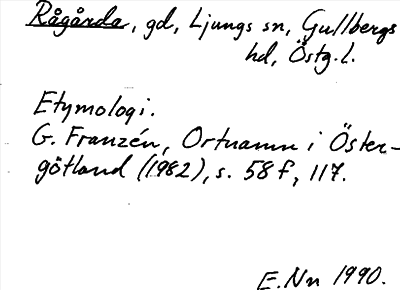 Rågårda, gd, Ljungs sn, Gullbergs
hd, Östg.l.
Etymologi.
G. Franzén, Ortnamn i Öster-
götland (1982), s. 58 f, 117.
E.Nn 1990.